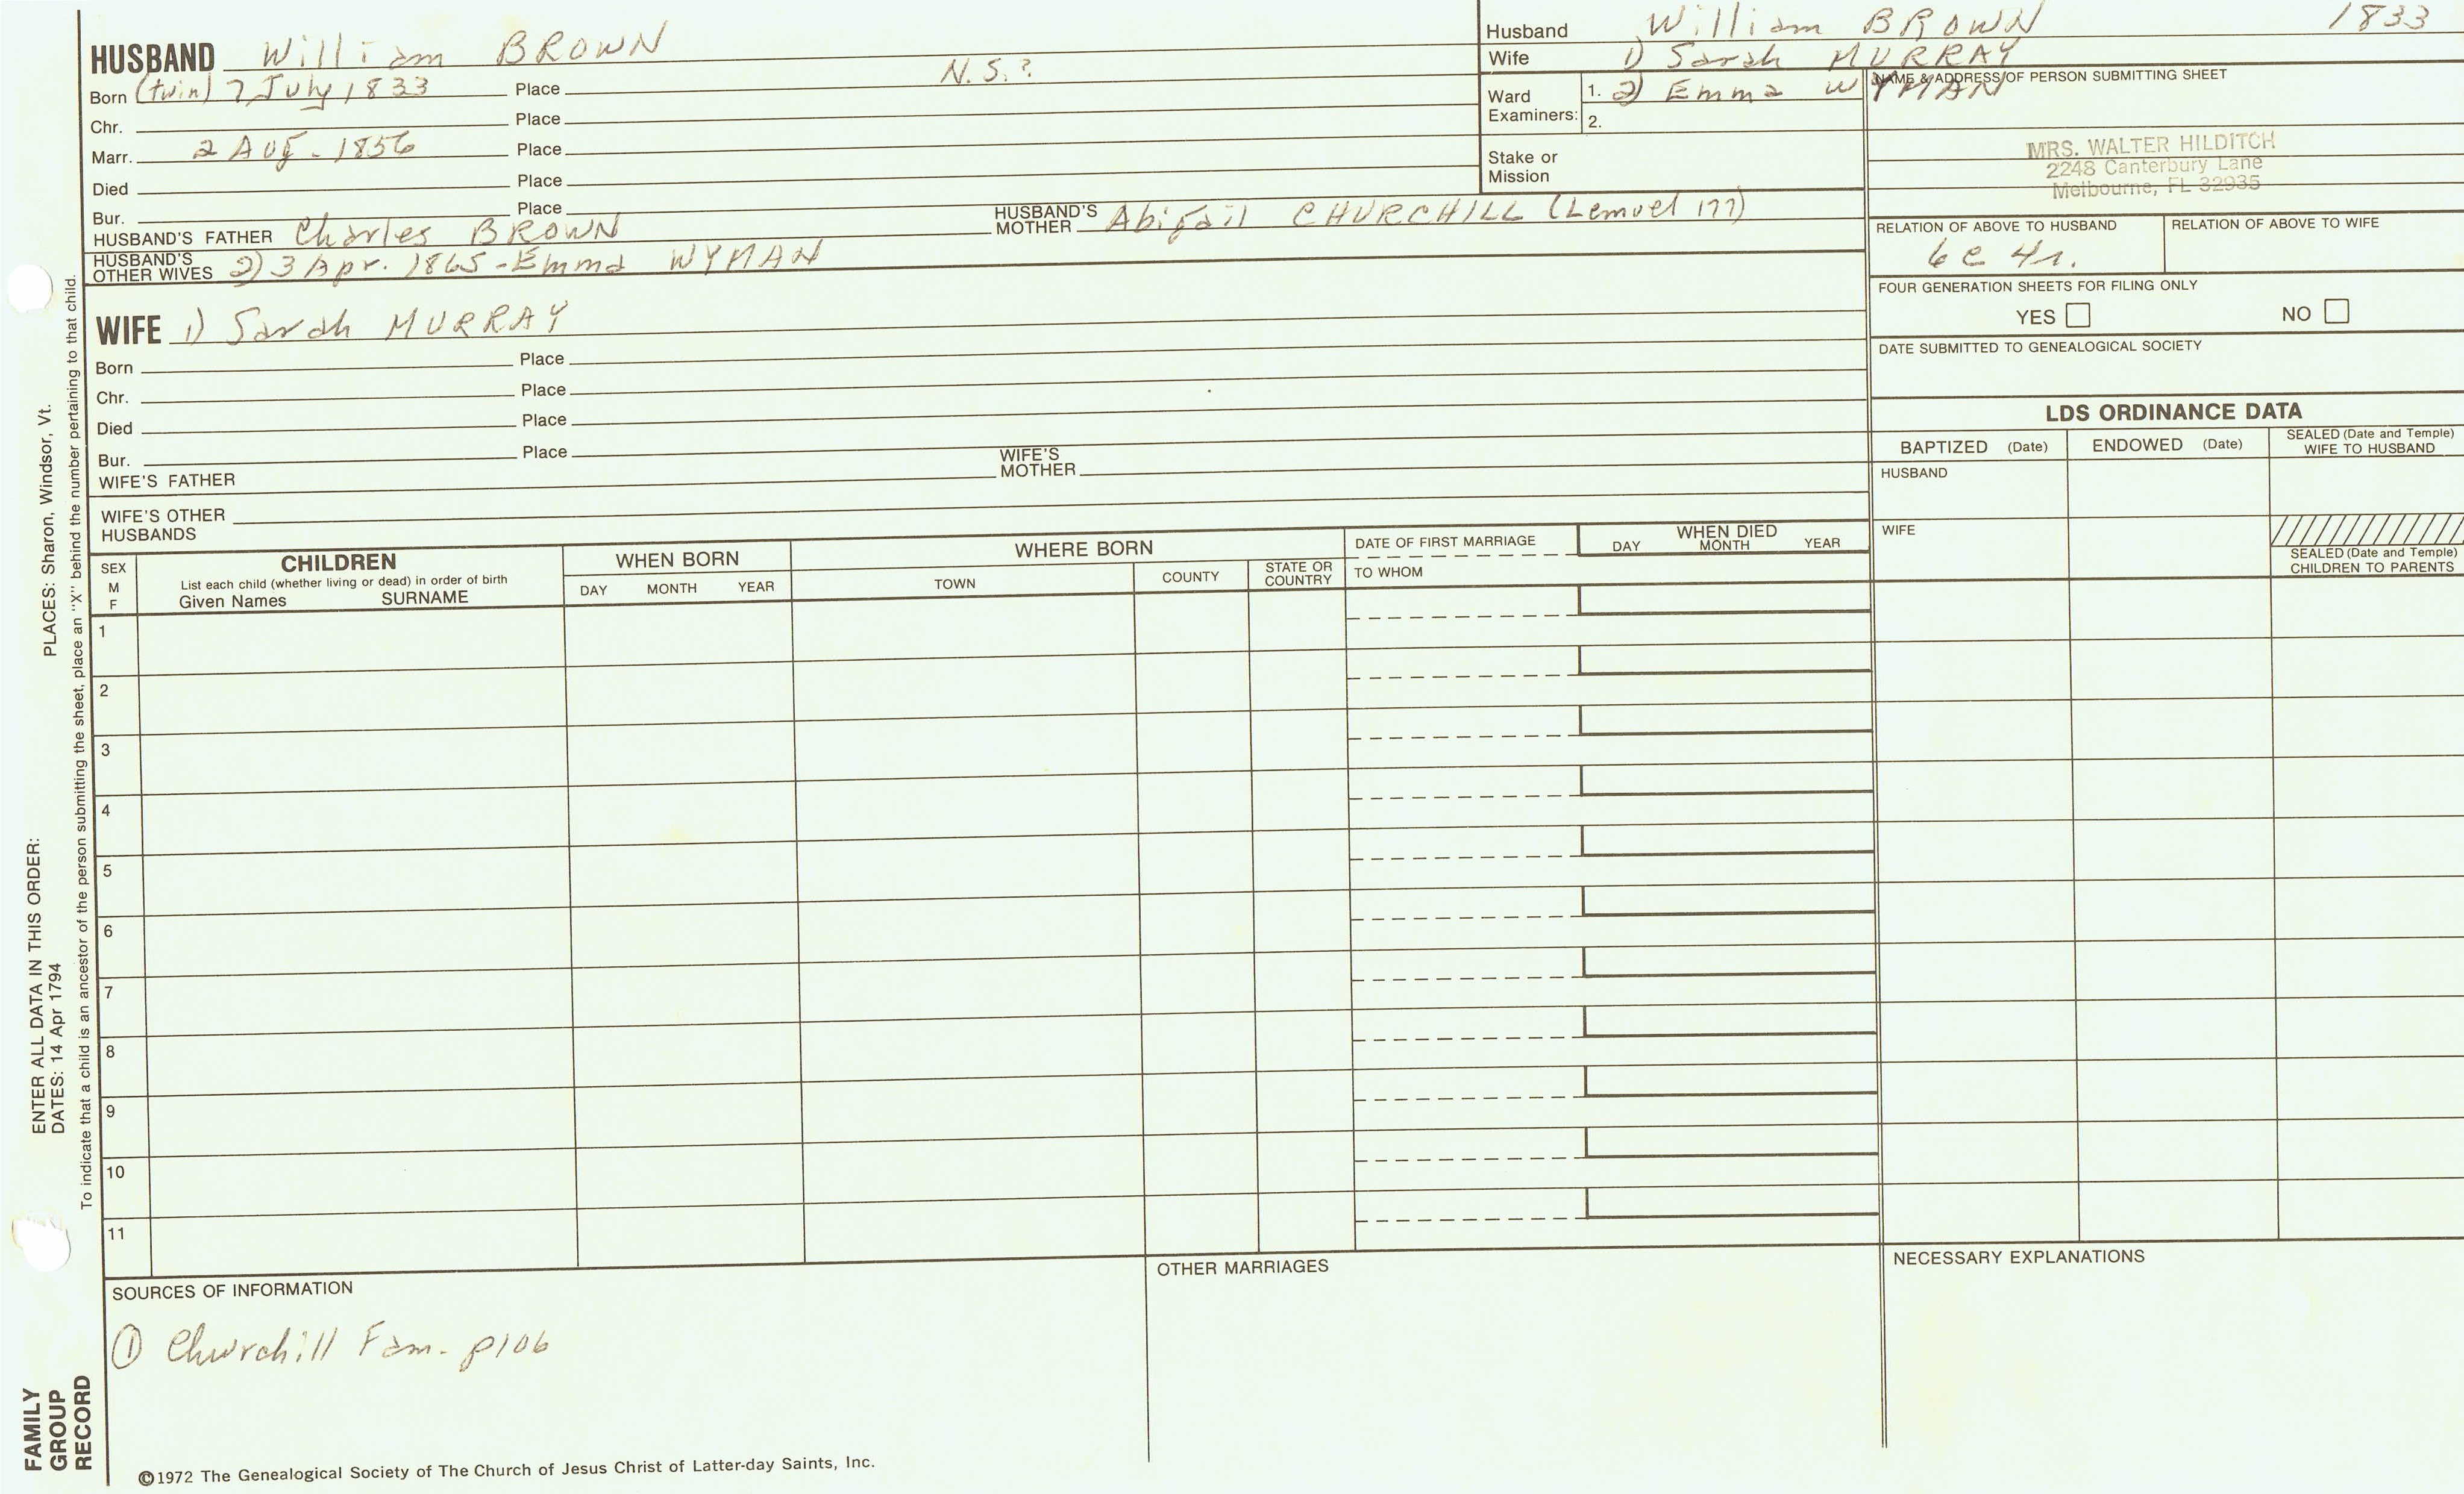 HUSBAND William BROWN
Born (twin) 7 July 1833 Place N.S.?
Chr. Place
Marr. 2 Aug. 1856 Place
Died Place
Bur. Place
HUSBAND'S FATHER Charles BROWN HUSBAND'S MOTHER Abigail CHURCHILL (Lemuel 177)
HUSBAND'S OTHER WIVES 2) 3 Apr. 1865 - Emma WYMAN
WIFE 1) Sarah MURRAY
Born Place
Chr. Place
Died Place
Bur. Place
WIFE'S FATHER WIFE'S MOTHER
WIFE'S OTHER HUSBANDS
Husband William BROWN 1833
Wife 1) Sarah MURRAY
Ward Examiners: 1. 2) Emma WYMAN
2.
Stake or Mission
NAME & ADDRESS OF PERSON SUBMITTING SHEET
MRS. WALTER HILDITCH
2248 Canterbury Lane
Melbourne, FL 32935
RELATION OF ABOVE TO HUSBAND RELATION OF ABOVE TO WIFE
6c 4r.
FOUR GENERATION SHEETS FOR FILING ONLY
YES NO
DATE SUBMITTED TO GENEALOGICAL SOCIETY
LDS ORDINANCE DATA
BAPTIZED (Date) ENDOWED (Date) SEALED (Date and Temple) WIFE TO HUSBAND
HUSBAND
WIFE
SEALED (Date and Temple)
CHILDREN TO PARENTS
SEX M F
CHILDREN
List each child (whether living or dead) in order of birth
Given Names SURNAME
WHEN BORN
DAY MONTH YEAR
WHERE BORN
TOWN COUNTY STATE OR COUNTRY
DATE OF FIRST MARRIAGE
TO WHOM
WHEN DIED
DAY MONTH YEAR
1
2
3
4
5
6
7
8
9
10
11
SOURCES OF INFORMATION
① Churchill Fam. p106
OTHER MARRIAGES
NECESSARY EXPLANATIONS
©1972 The Genealogical Society of The Church of Jesus Christ of Latter-day Saints, Inc.
FAMILY
GROUP
RECORD
ENTER ALL DATA IN THIS ORDER:
DATES: 14 Apr 1794
PLACES: Sharon, Windsor, Vt.
To indicate that a child is an ancestor of the person submitting the sheet, place an "X" behind the number pertaining to that child.